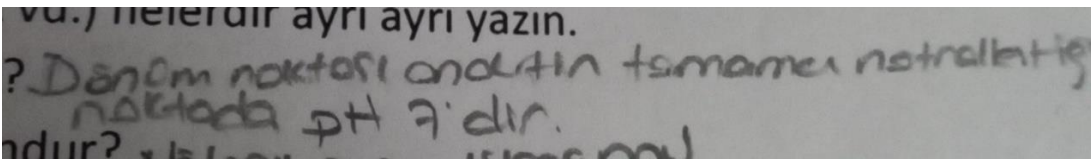 vd.) nelerdir ayrı ayrı yazın.
? Dönüm noktası analitin tamamen notralleştiğ
noktada pH 7'dir.
ndur?